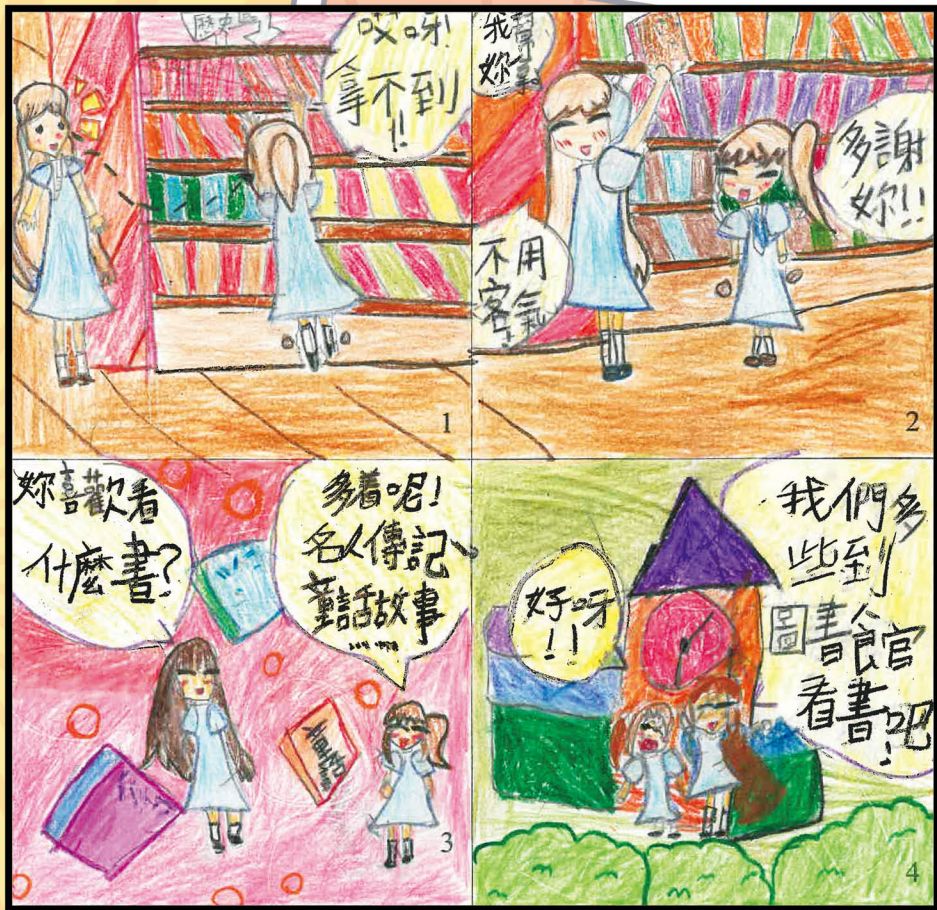 哎呀!
拿不到
!!
1
我幫
妳拿
多謝
妳!!
不用
客氣
2
妳喜歡看
什麼書?
多着呢!
名人傳記、
童話故事
……
3
我們多
些到
圖書館
看書吧!
好呀
!!
4